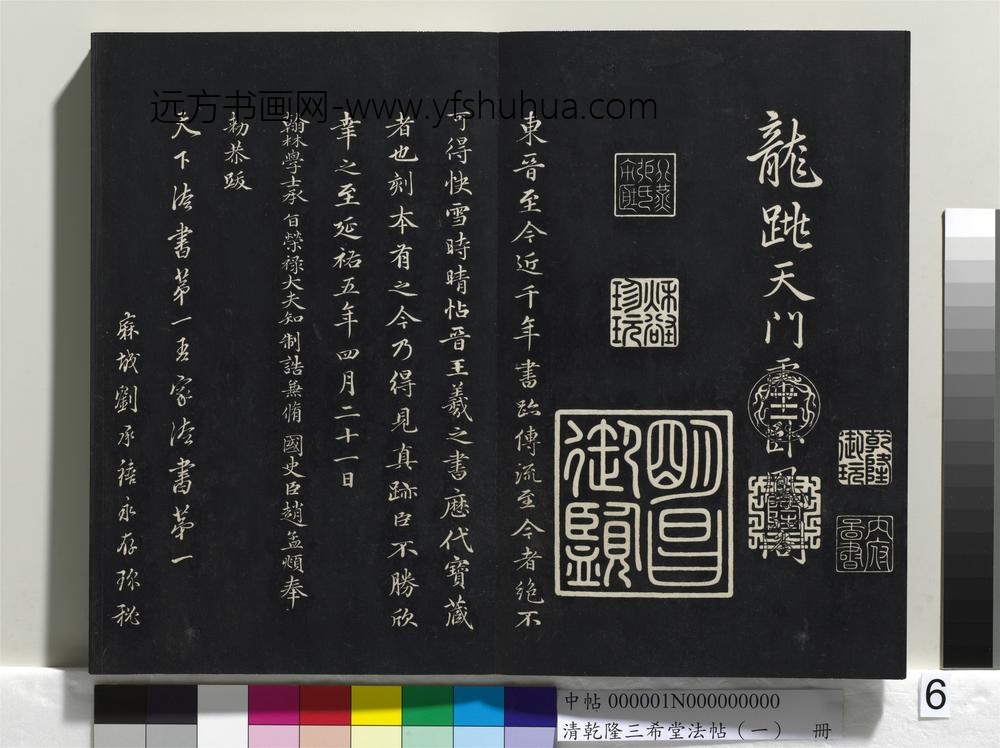 龍跳天門虎臥鳳閣
乾隆御玩
明昌御覽
珍玩
東晉至今近千年書跡傳流至今者絶不
可得快雪時晴帖晉王羲之書歷代寶藏
者也刻本有之今乃得見真跡臣不勝欣
幸之至延祐五年四月二十一日
翰林學士承旨榮祿大夫知制誥兼脩國史臣趙孟頫奉
勅恭跋
天下法書第一吾家法書第一
麻城劉承禧永存珍秘
远方书画网-www.yfshuhua.com
6
中帖 000001N000000000
清乾隆三希堂法帖（一） 冊